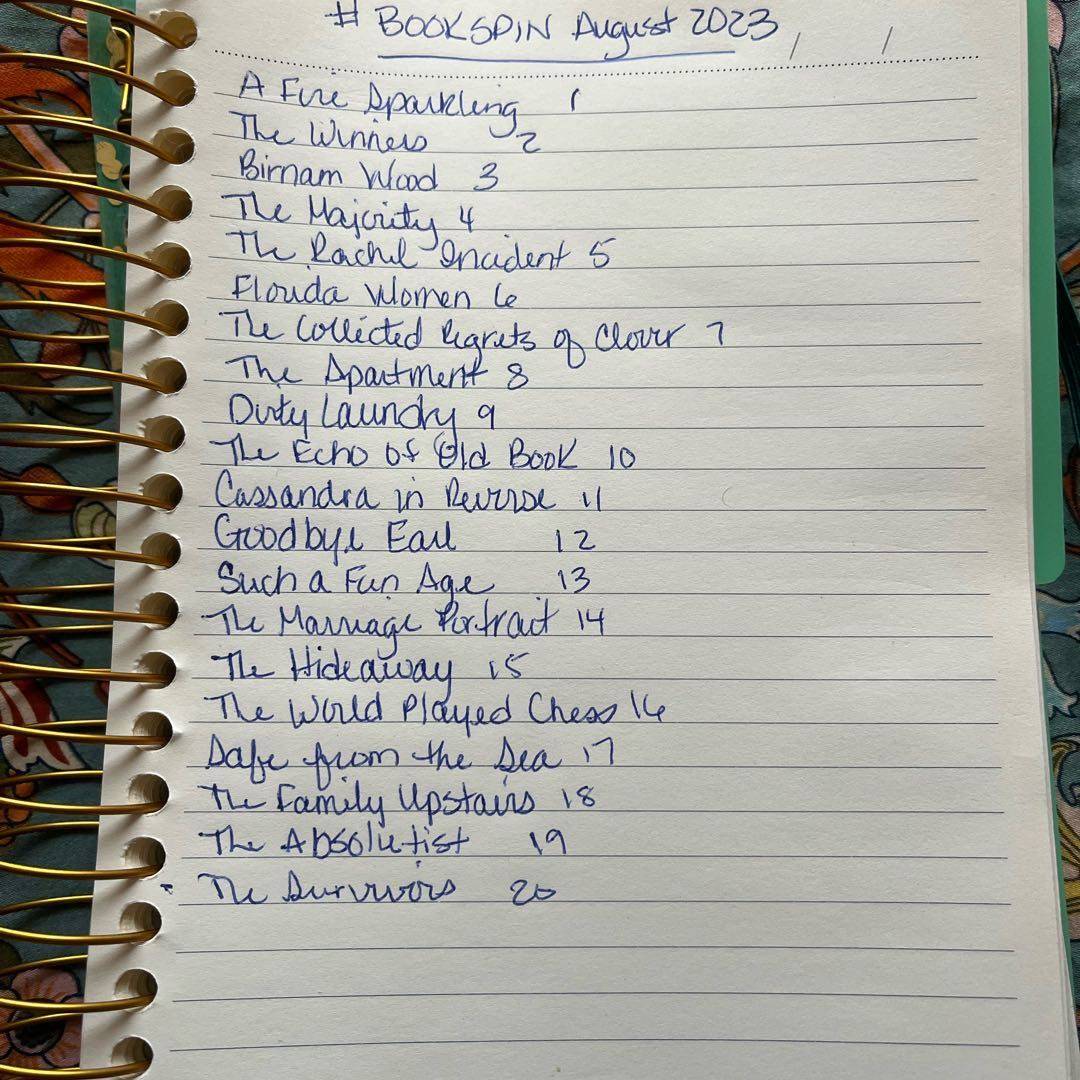 # BOOKSPIN August 2023
A Fire Sparkling 1
The Winners 2
Birnam Wood 3
The Majority 4
The Rachel Incident 5
Florida Women 6
The Collected Regrets of Clover 7
The Apartment 8
Dirty Laundry 9
The Echo of Old Book 10
Cassandra in Reverse 11
Goodbye Earl 12
Such a Fun Age 13
The Marriage Portrait 14
The Hideaway 15
The World Played Chess 16
Safe from the Sea 17
The Family Upstairs 18
The Absolutist 19
The Survivors 20